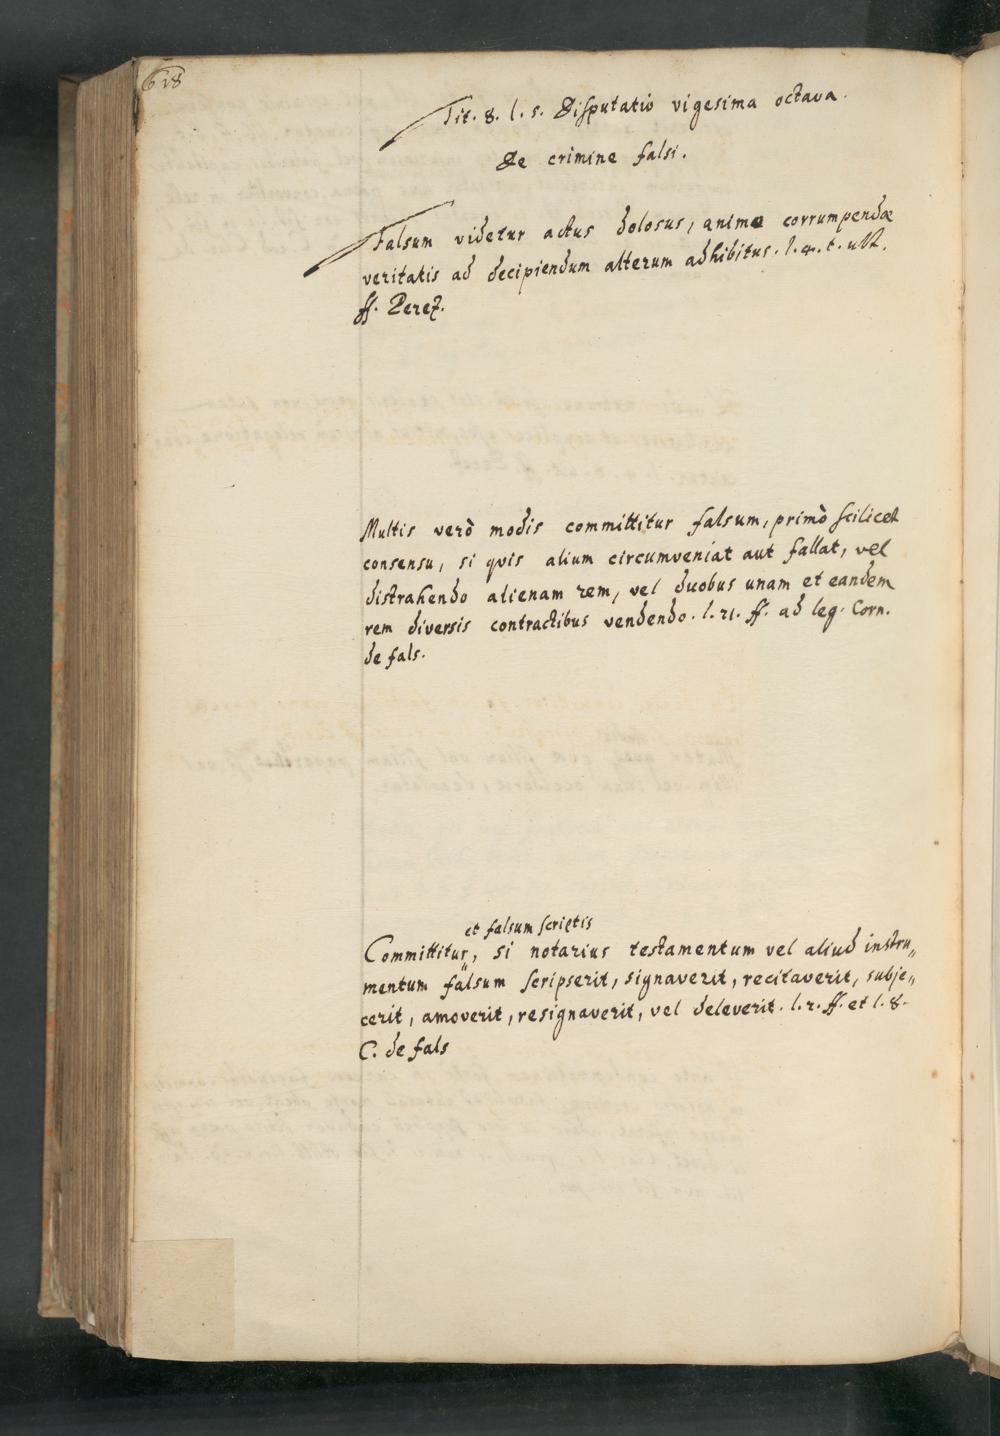 618
Tit. 8. l. 5. Disputatio vigesima octava.
De crimine falsi.
Falsum videtur actus dolosus, animo corrumpendæ
veritatis ad decipiendum alterum adhibitus. l. 4. t. ult.
ff. Perez.
Multis verò modis committitur falsum, primò scilicet
consensu, si quis alium circumveniat aut fallat, vel
distrahendo alienam rem, vel duobus unam et eandem
rem diversis contractibus vendendo. l. 21. ff. ad leg. Corn.
de fals.
et falsum scriptis
Committitur, si notarius testamentum vel aliud instru„
mentum falsum scripserit, signaverit, recitaverit, subje„
cerit, amoverit, resignaverit, vel deleverit. l. 2. ff. et l. 8.
C. de fals